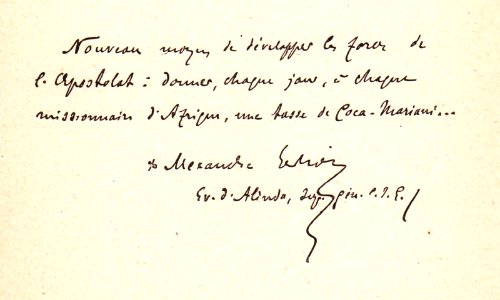 Nouveau moyen de développer les forces de
l'Apostolat : donner, chaque jour, à chaque
missionnaire d'Afrique, une tasse de Coca-Mariani...
+ Alexandre Le Roy
Ev. d'Alinda, Sup. gén. C.S.E.